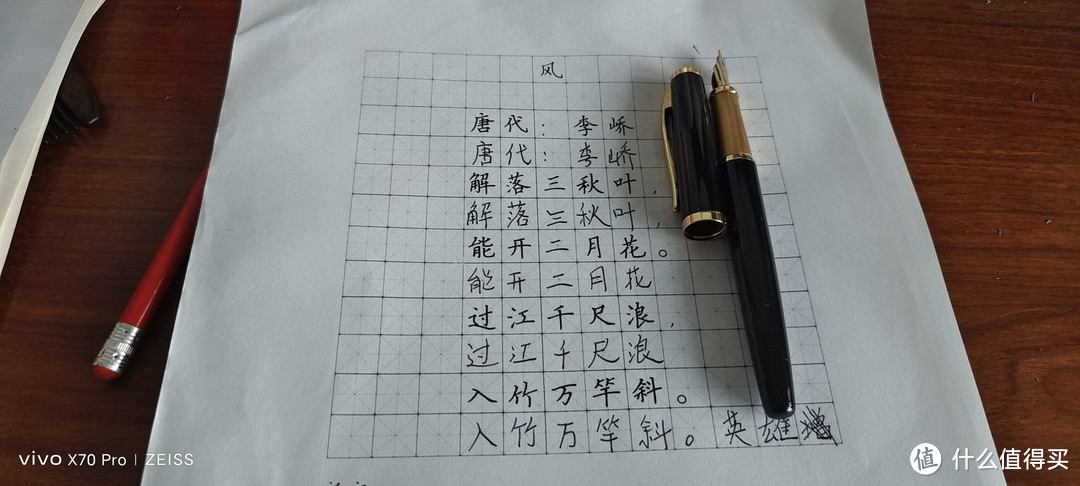 风
唐代：李峤
唐代：李峤
解落三秋叶，
解落三秋叶，
能开二月花。
能开二月花
过江千尺浪，
过江千尺浪
入竹万竿斜。
入竹万竿斜。英雄
vivo X70 Pro | ZEISS
值 什么值得买